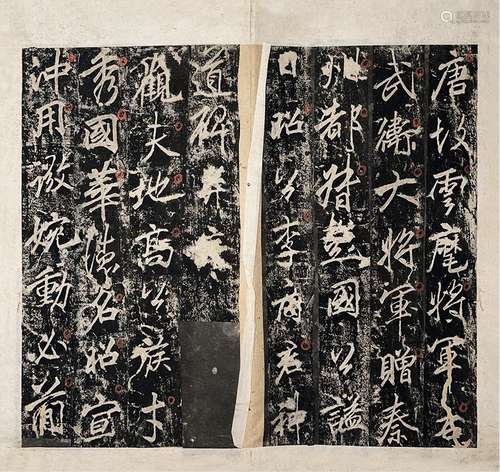 唐故雲麾將軍右
武衛大將軍贈秦
州都督彭國公謚
曰昭公李府君神
道碑并序
觀夫地高公族才
秀國華德名昭宣
沖用微婉動必簡